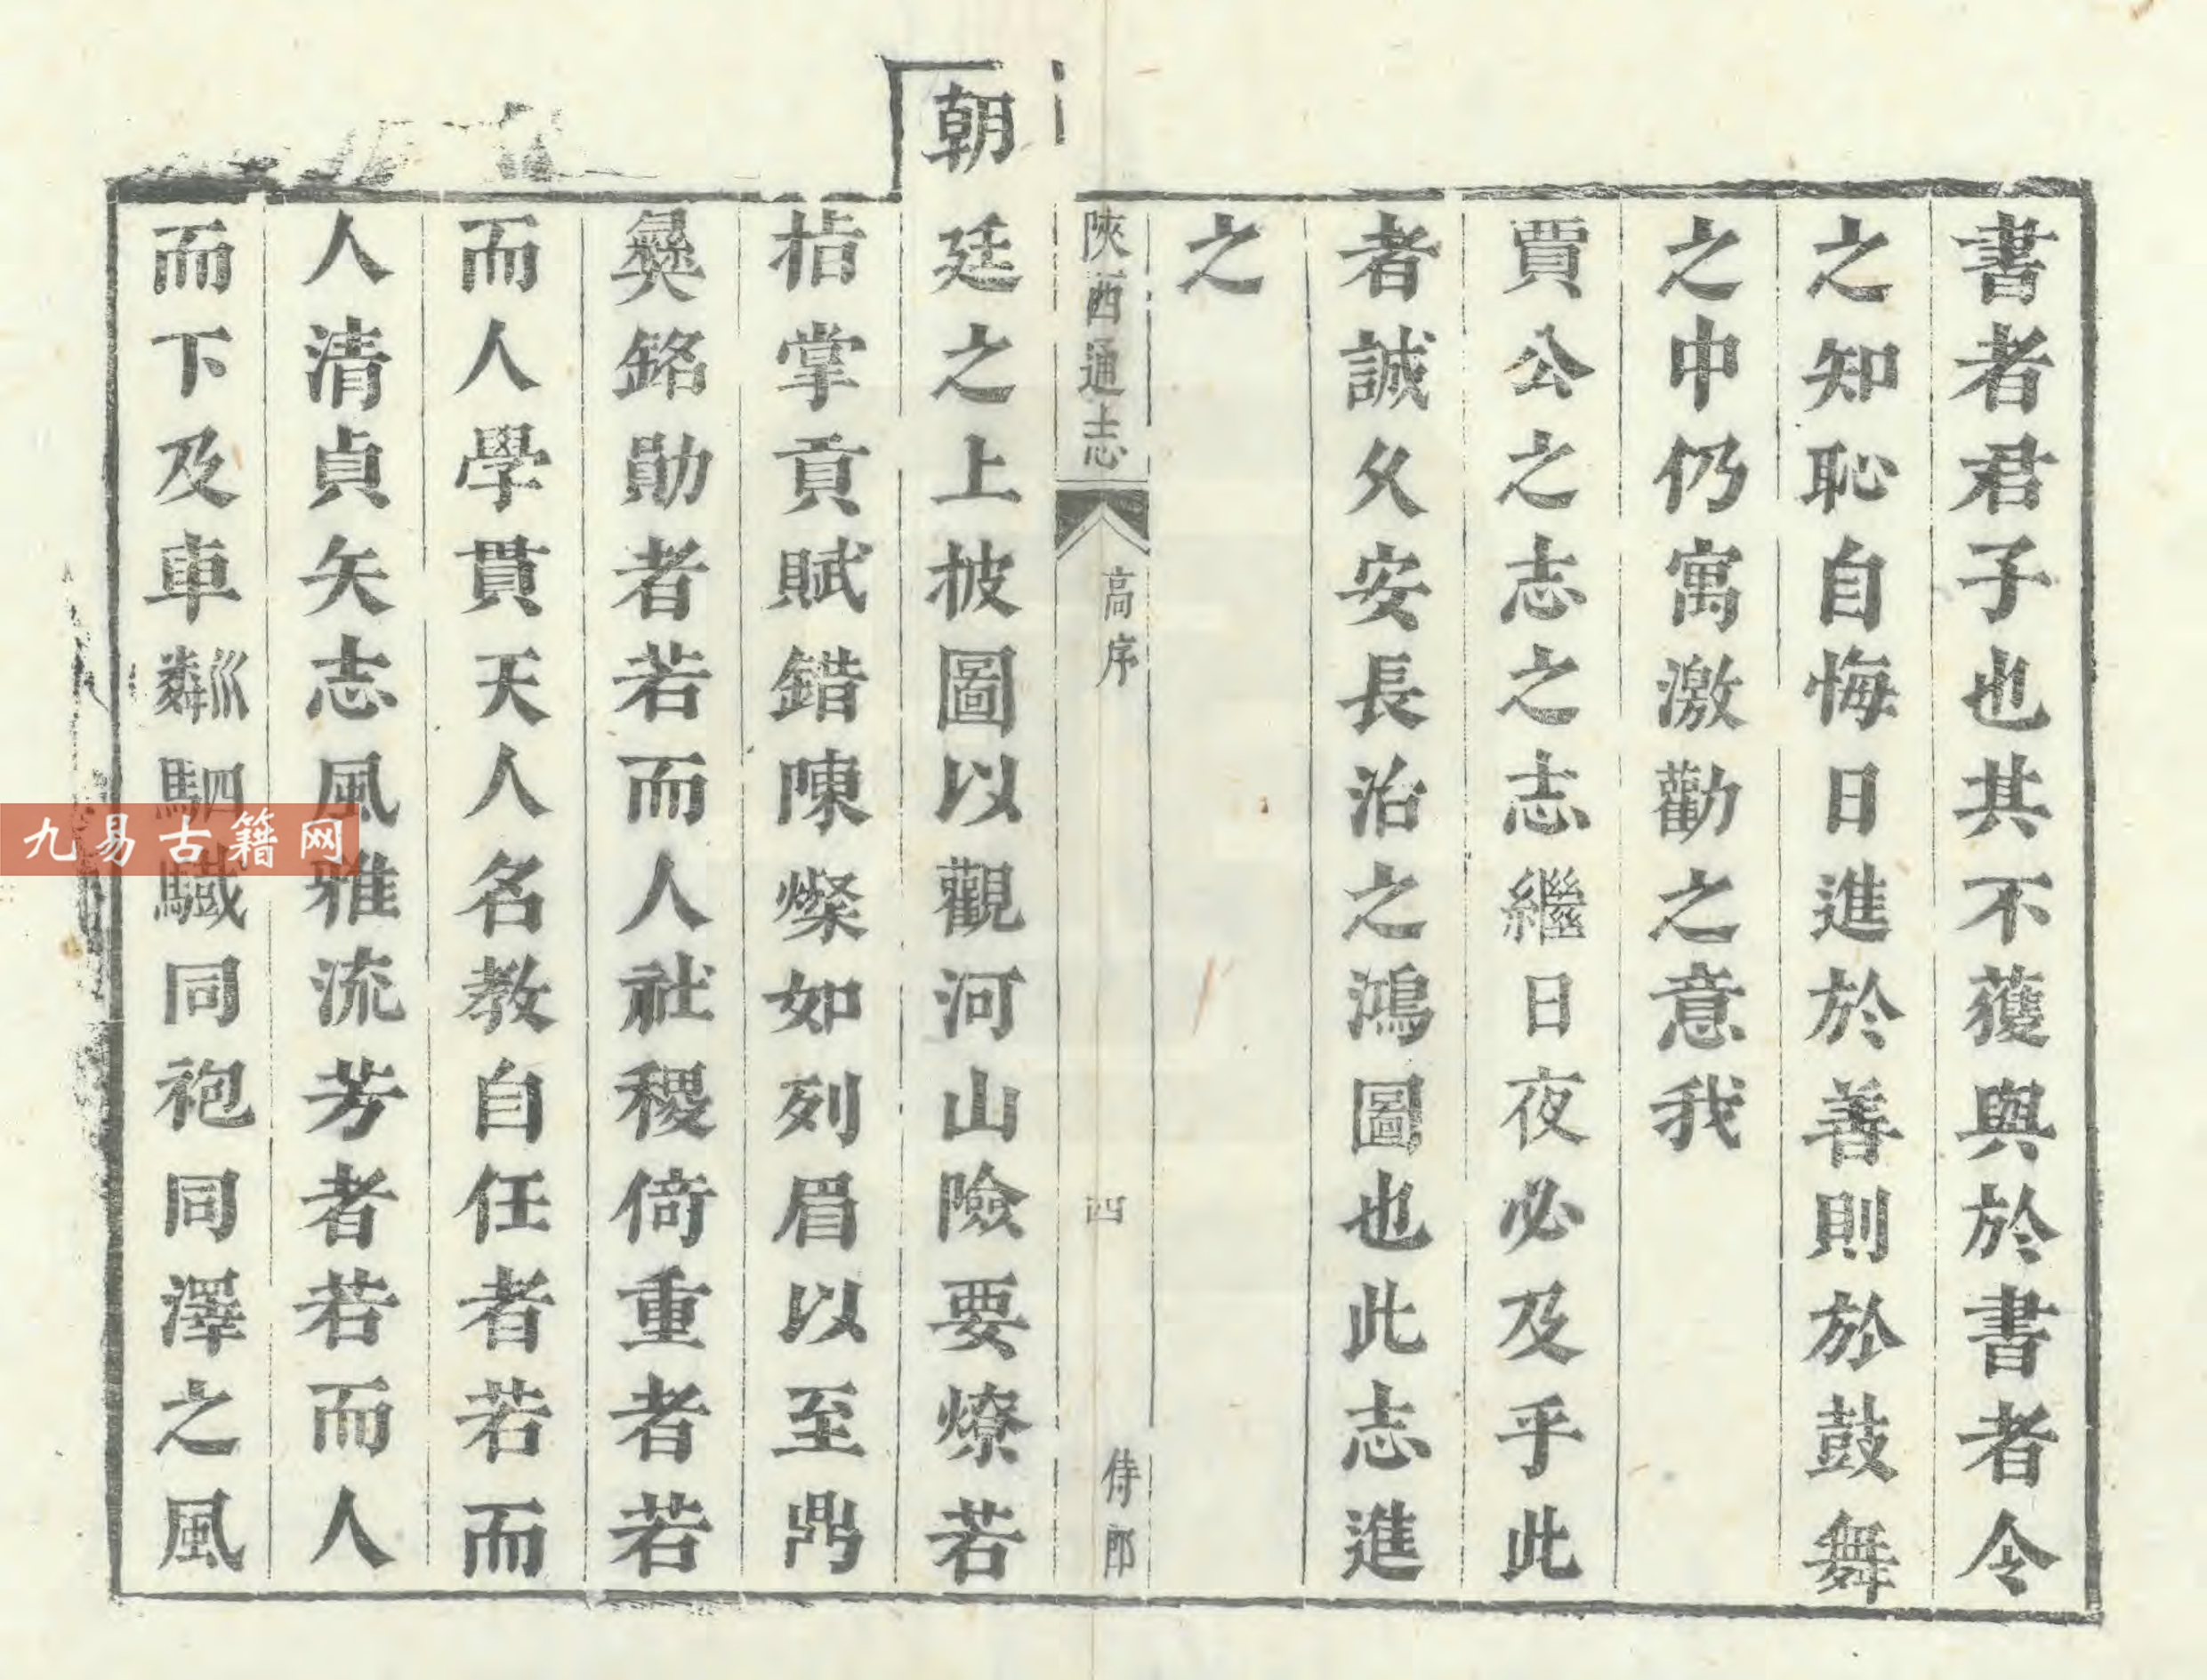 書者君子也其不獲與於書者令
之知恥自悔日進於善則於鼓舞
之中仍寓激勸之意我
賈公之志之志繼日夜必及乎此
者誠久安長治之鴻圖也此志進
之
陝西通志
高序
四
侍郎
朝廷之上披圖以觀河山險要燎若
指掌貢賦錯陳燦如列眉以至鼎
彝銘勛者若而人社稷倚重者若
而人學貫天人名教自任者若而
人清貞矢志風雅流芳者若而人
而下及車鄰駟驖同袍同澤之風
九易古籍网